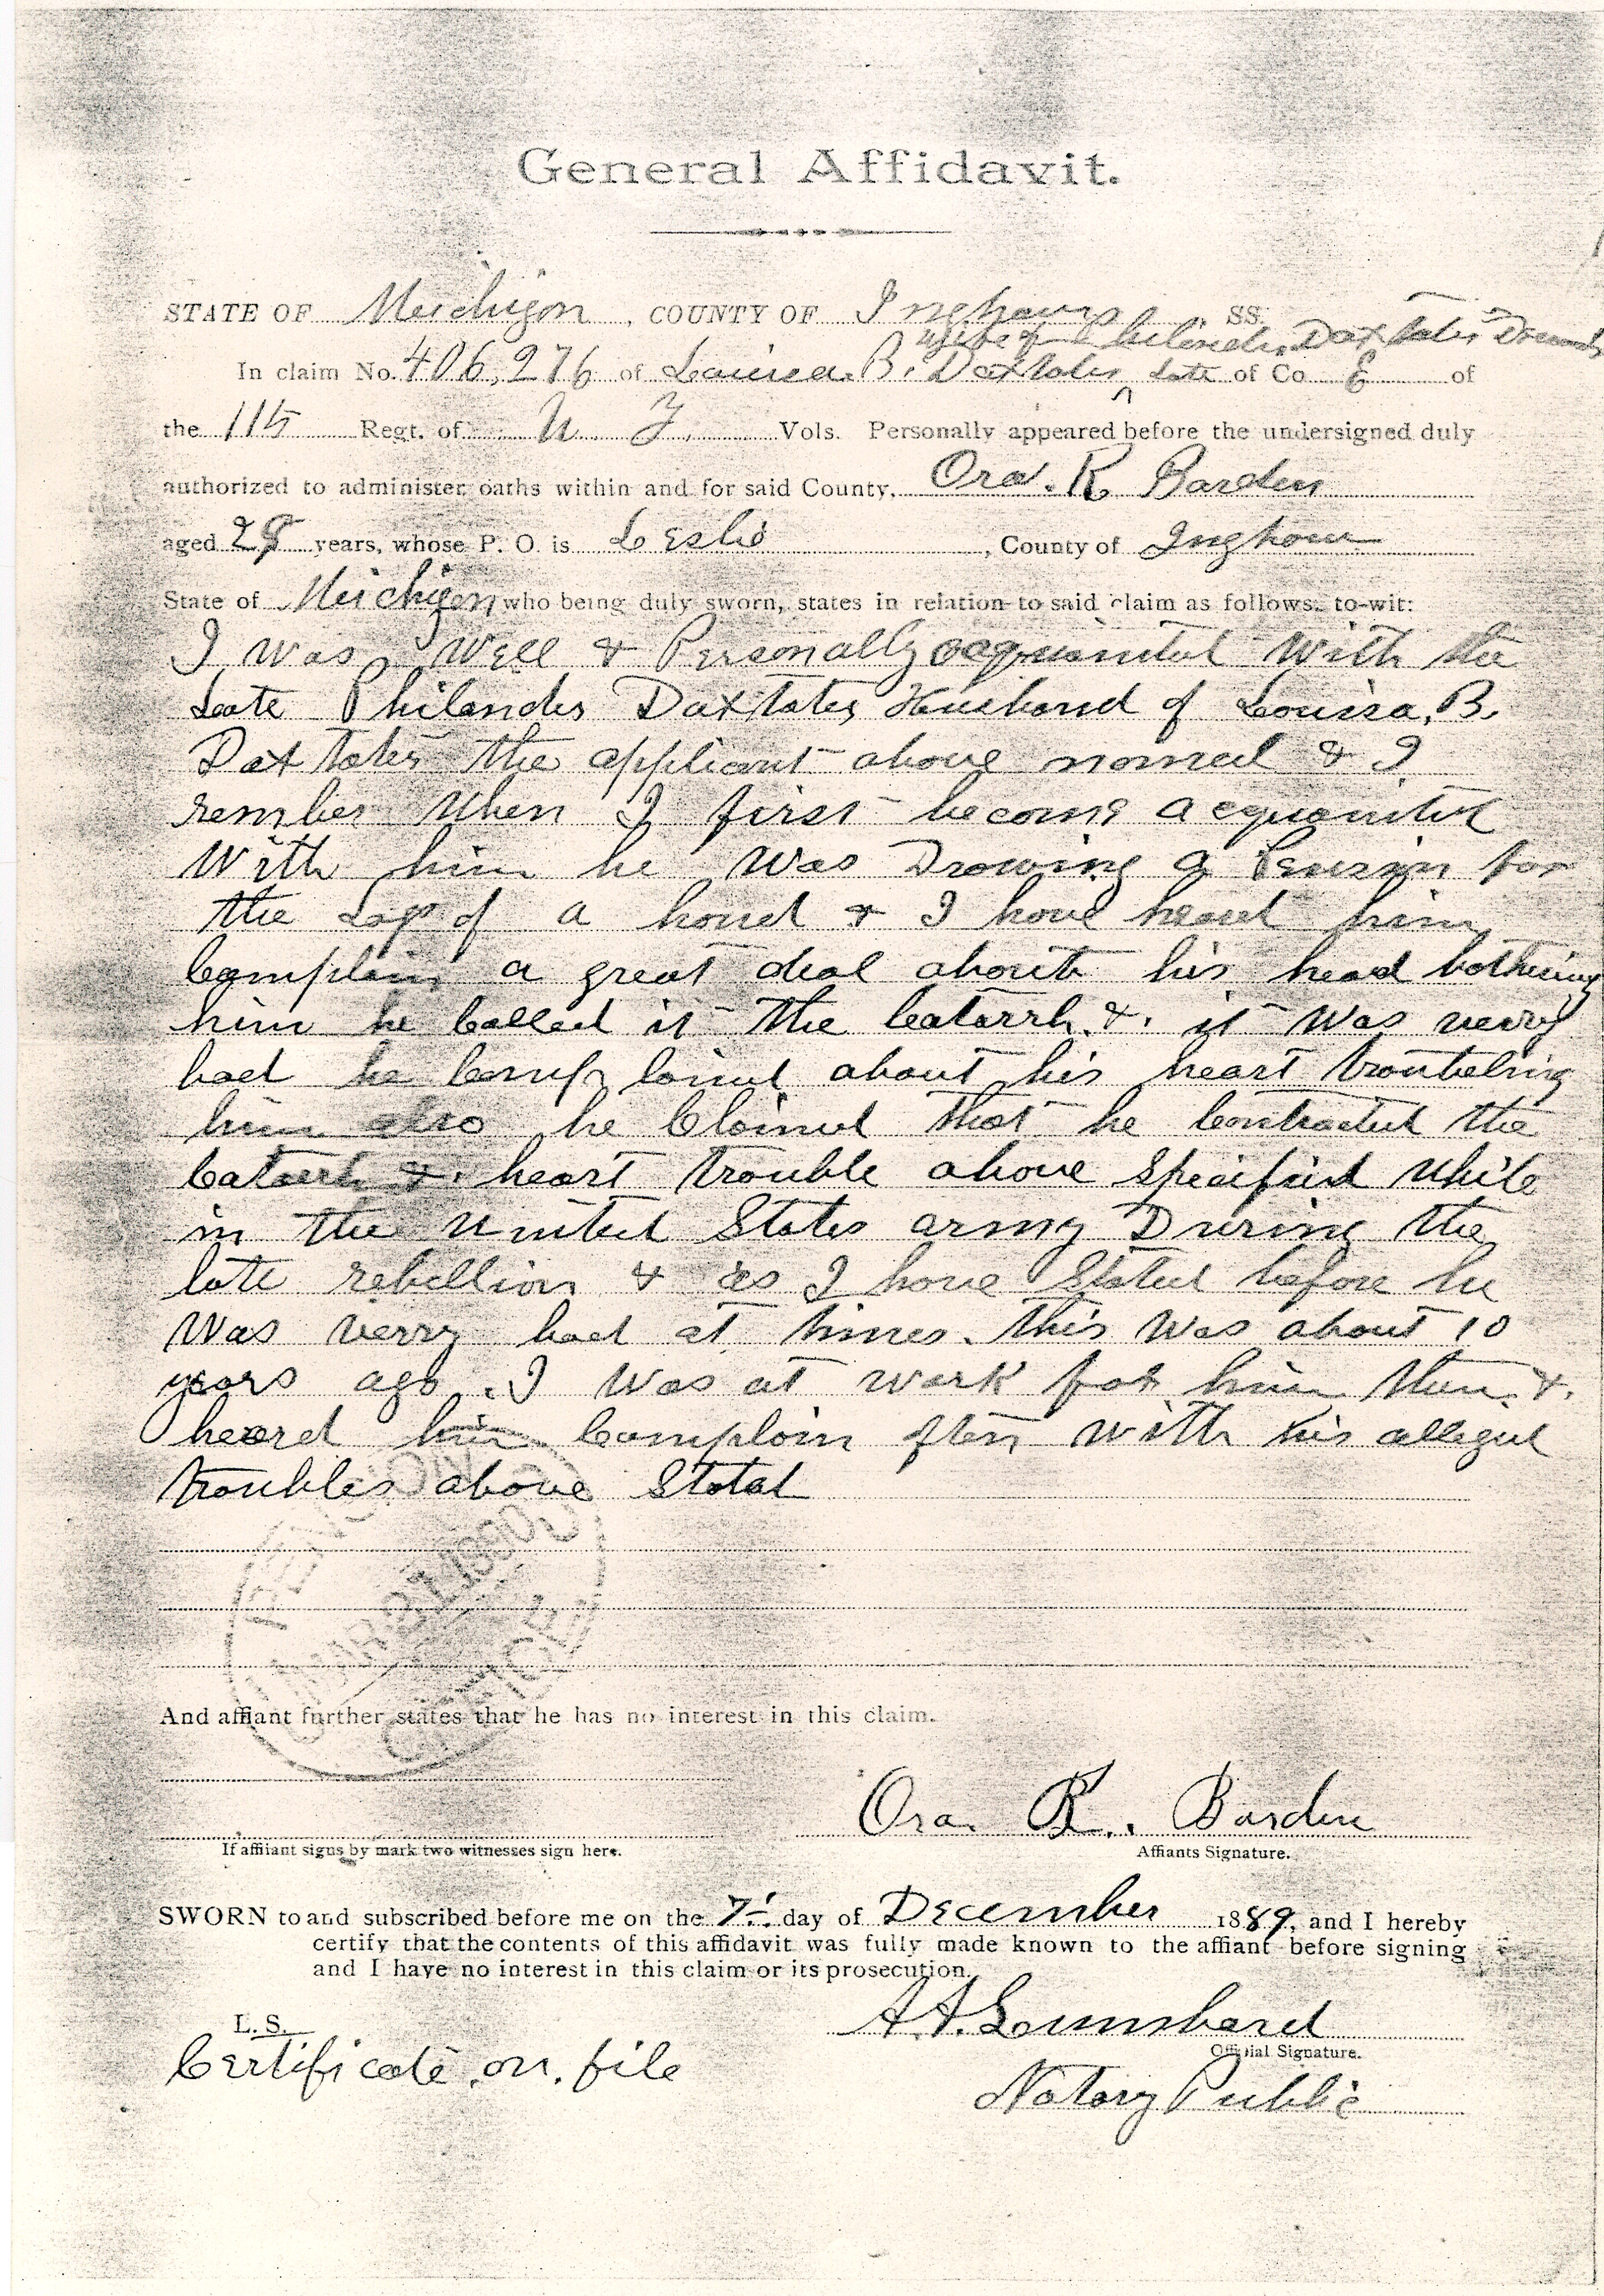 General Affidavit.
STATE OF Michigan, COUNTY OF Ingham SS.
wife of Philander Daxtater Deceased
In claim No. 406,276 of Louisa. B. Daxtater late of Co E of
the 115 Regt. of N. Y. Vols. Personally appeared before the undersigned duly
authorized to administer oaths within and for said County. Ora. R Barden
aged 28 years, whose P. O. is Leslie, County of Ingham
State of Michigan who being duly sworn, states in relation to said claim as follows. to-wit:
I was Well & Personally acquainted With the
Late Philander Daxtater Husband of Louisa. B.
Daxtater the applicant above named & I
rember When I first become acquainted
With him he Was Drawing a Pension for
the Loss of a hand & I have heard him
Complain a great deal about his head bothering
him he Called it the Catarrh & it Was verry
bad he Complained about his heart troubeling
him also he Claimed that he Contracted the
Catarrh & heart trouble above Specified While
in the United States army During the
late rebellion & as I have Stated before he
Was verry bad at times. this Was about 10
years ago. I Was at work for him then &
heard him Complain often With his alleged
troubles above Stated
PENSION
MAR 27 1890
OFFICE
And affiant further states that he has no interest in this claim.
Ora. R. Barden
If affiiant signs by mark two witnesses sign here.
Affiants Signature.
SWORN to and subscribed before me on the 7 day of December 1889, and I hereby
certify that the contents of this affidavit was fully made known to the affiant before signing
and I have no interest in this claim or its prosecution.
L. S.
Official Signature.
Certificate on file
Notary Public